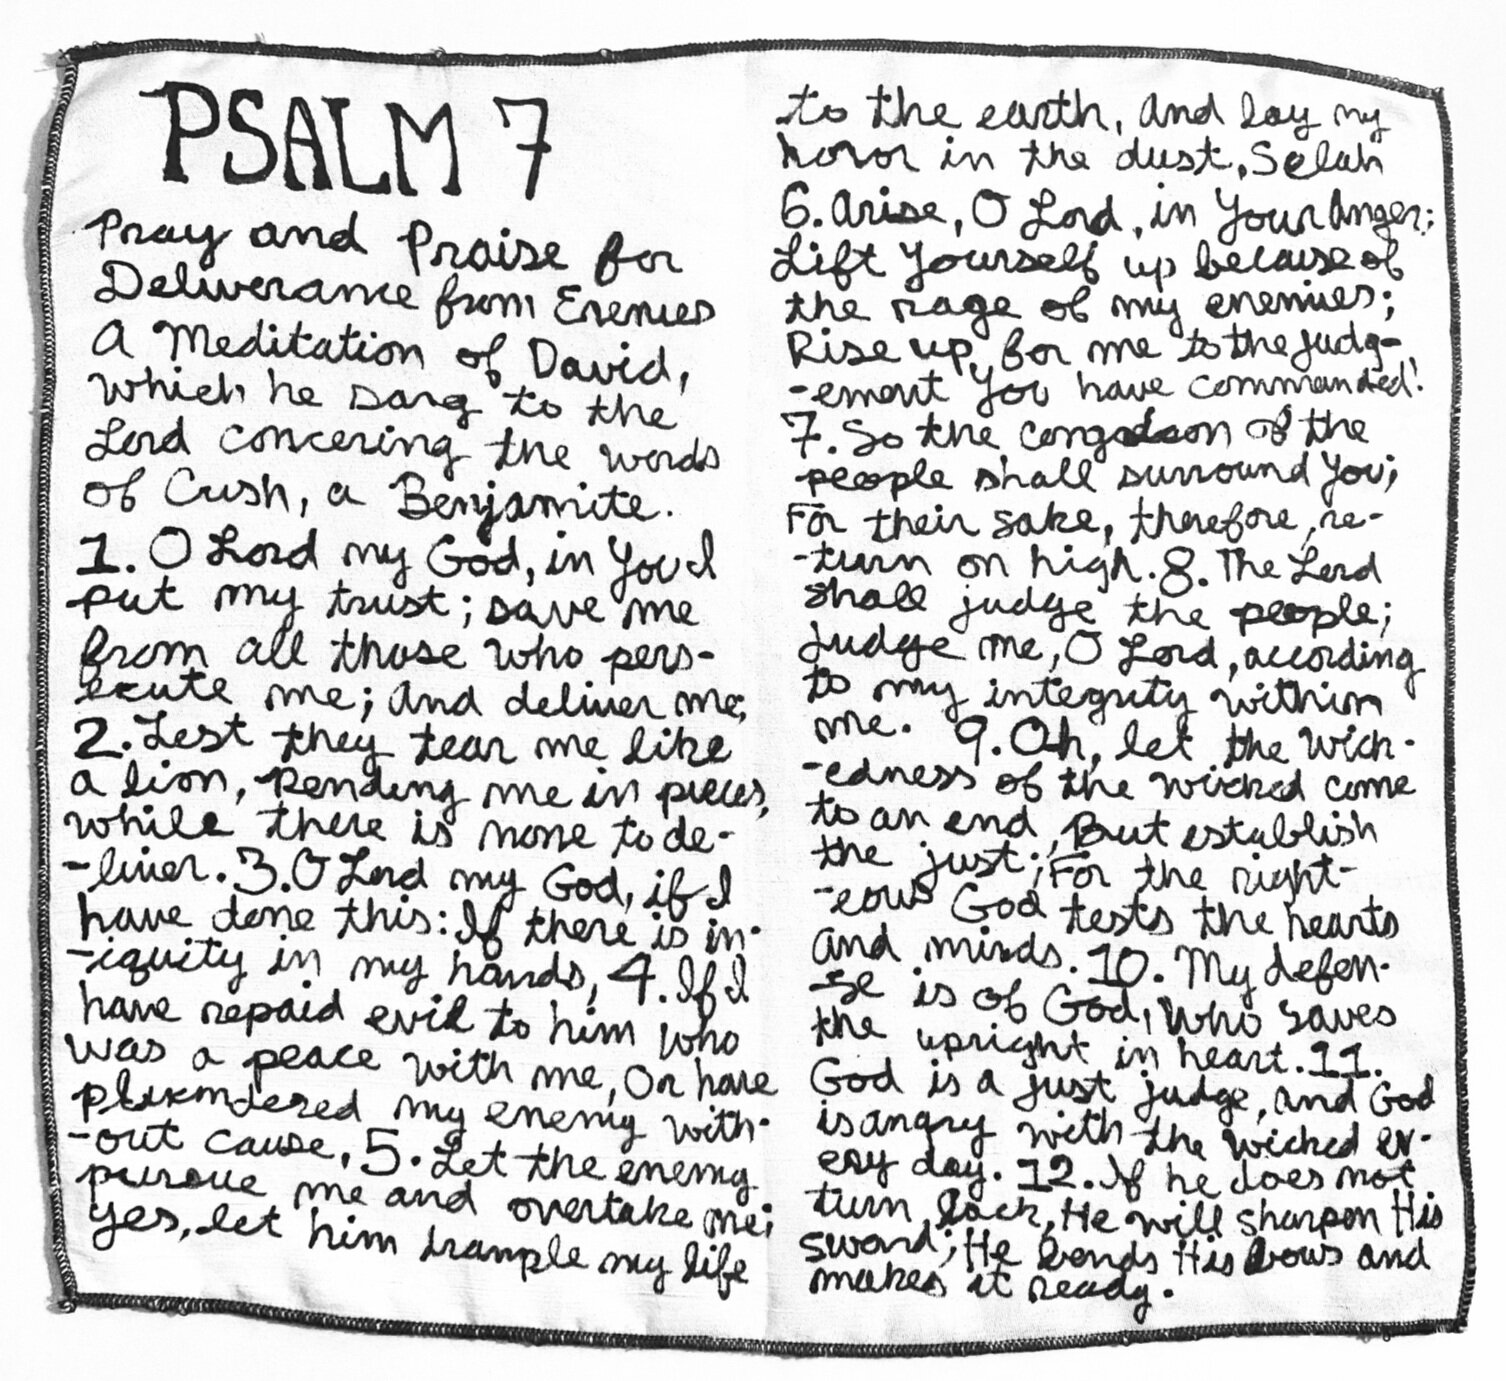 PSALM 7
Pray and Praise for
Deliverance from Enemies
A Meditation of David,
which he sang to the
Lord concering the words
of Cush, a Benjamite.
1. O Lord my God, in You I
put my trust; save me
from all those who pers-
ecute me; and deliver me;
2. Lest they tear me like
a lion, Rending me in pieces,
while there is none to de-
-liver. 3. O Lord my God, if I
have done this: If there is in-
-iquity in my hands, 4. If I
have repaid evil to him who
was a peace with me, Or have
my enemy with-
-out cause, 5. Let the enemy
pursue me and overtake me;
Yes, let him trample my life
to the earth, and lay my
honor in the dust, Selah
6. Arise, O Lord, in Your Anger;
Lift Yourself up because of
the rage of my enemies;
Rise up, for me to the judg-
-ement You have commanded!
7. So the of the
people shall surround You;
For their sake, therefore, re-
-turn on high. 8. The Lord
shall judge the people;
Judge me, O Lord, according
to my integrity within
me. 9. Oh, let the wick-
-edness of the wicked come
to an end, But establish
the just; For the right-
-eous God tests the hearts
and minds. 10. My defen-
-se is of God, Who saves
the upright in heart. 11.
God is a just judge, and God
is angry with the wicked ev-
ery day. 12. If he does not
turn back, He will sharpen His
sword; He bends His bows and
makes it ready.